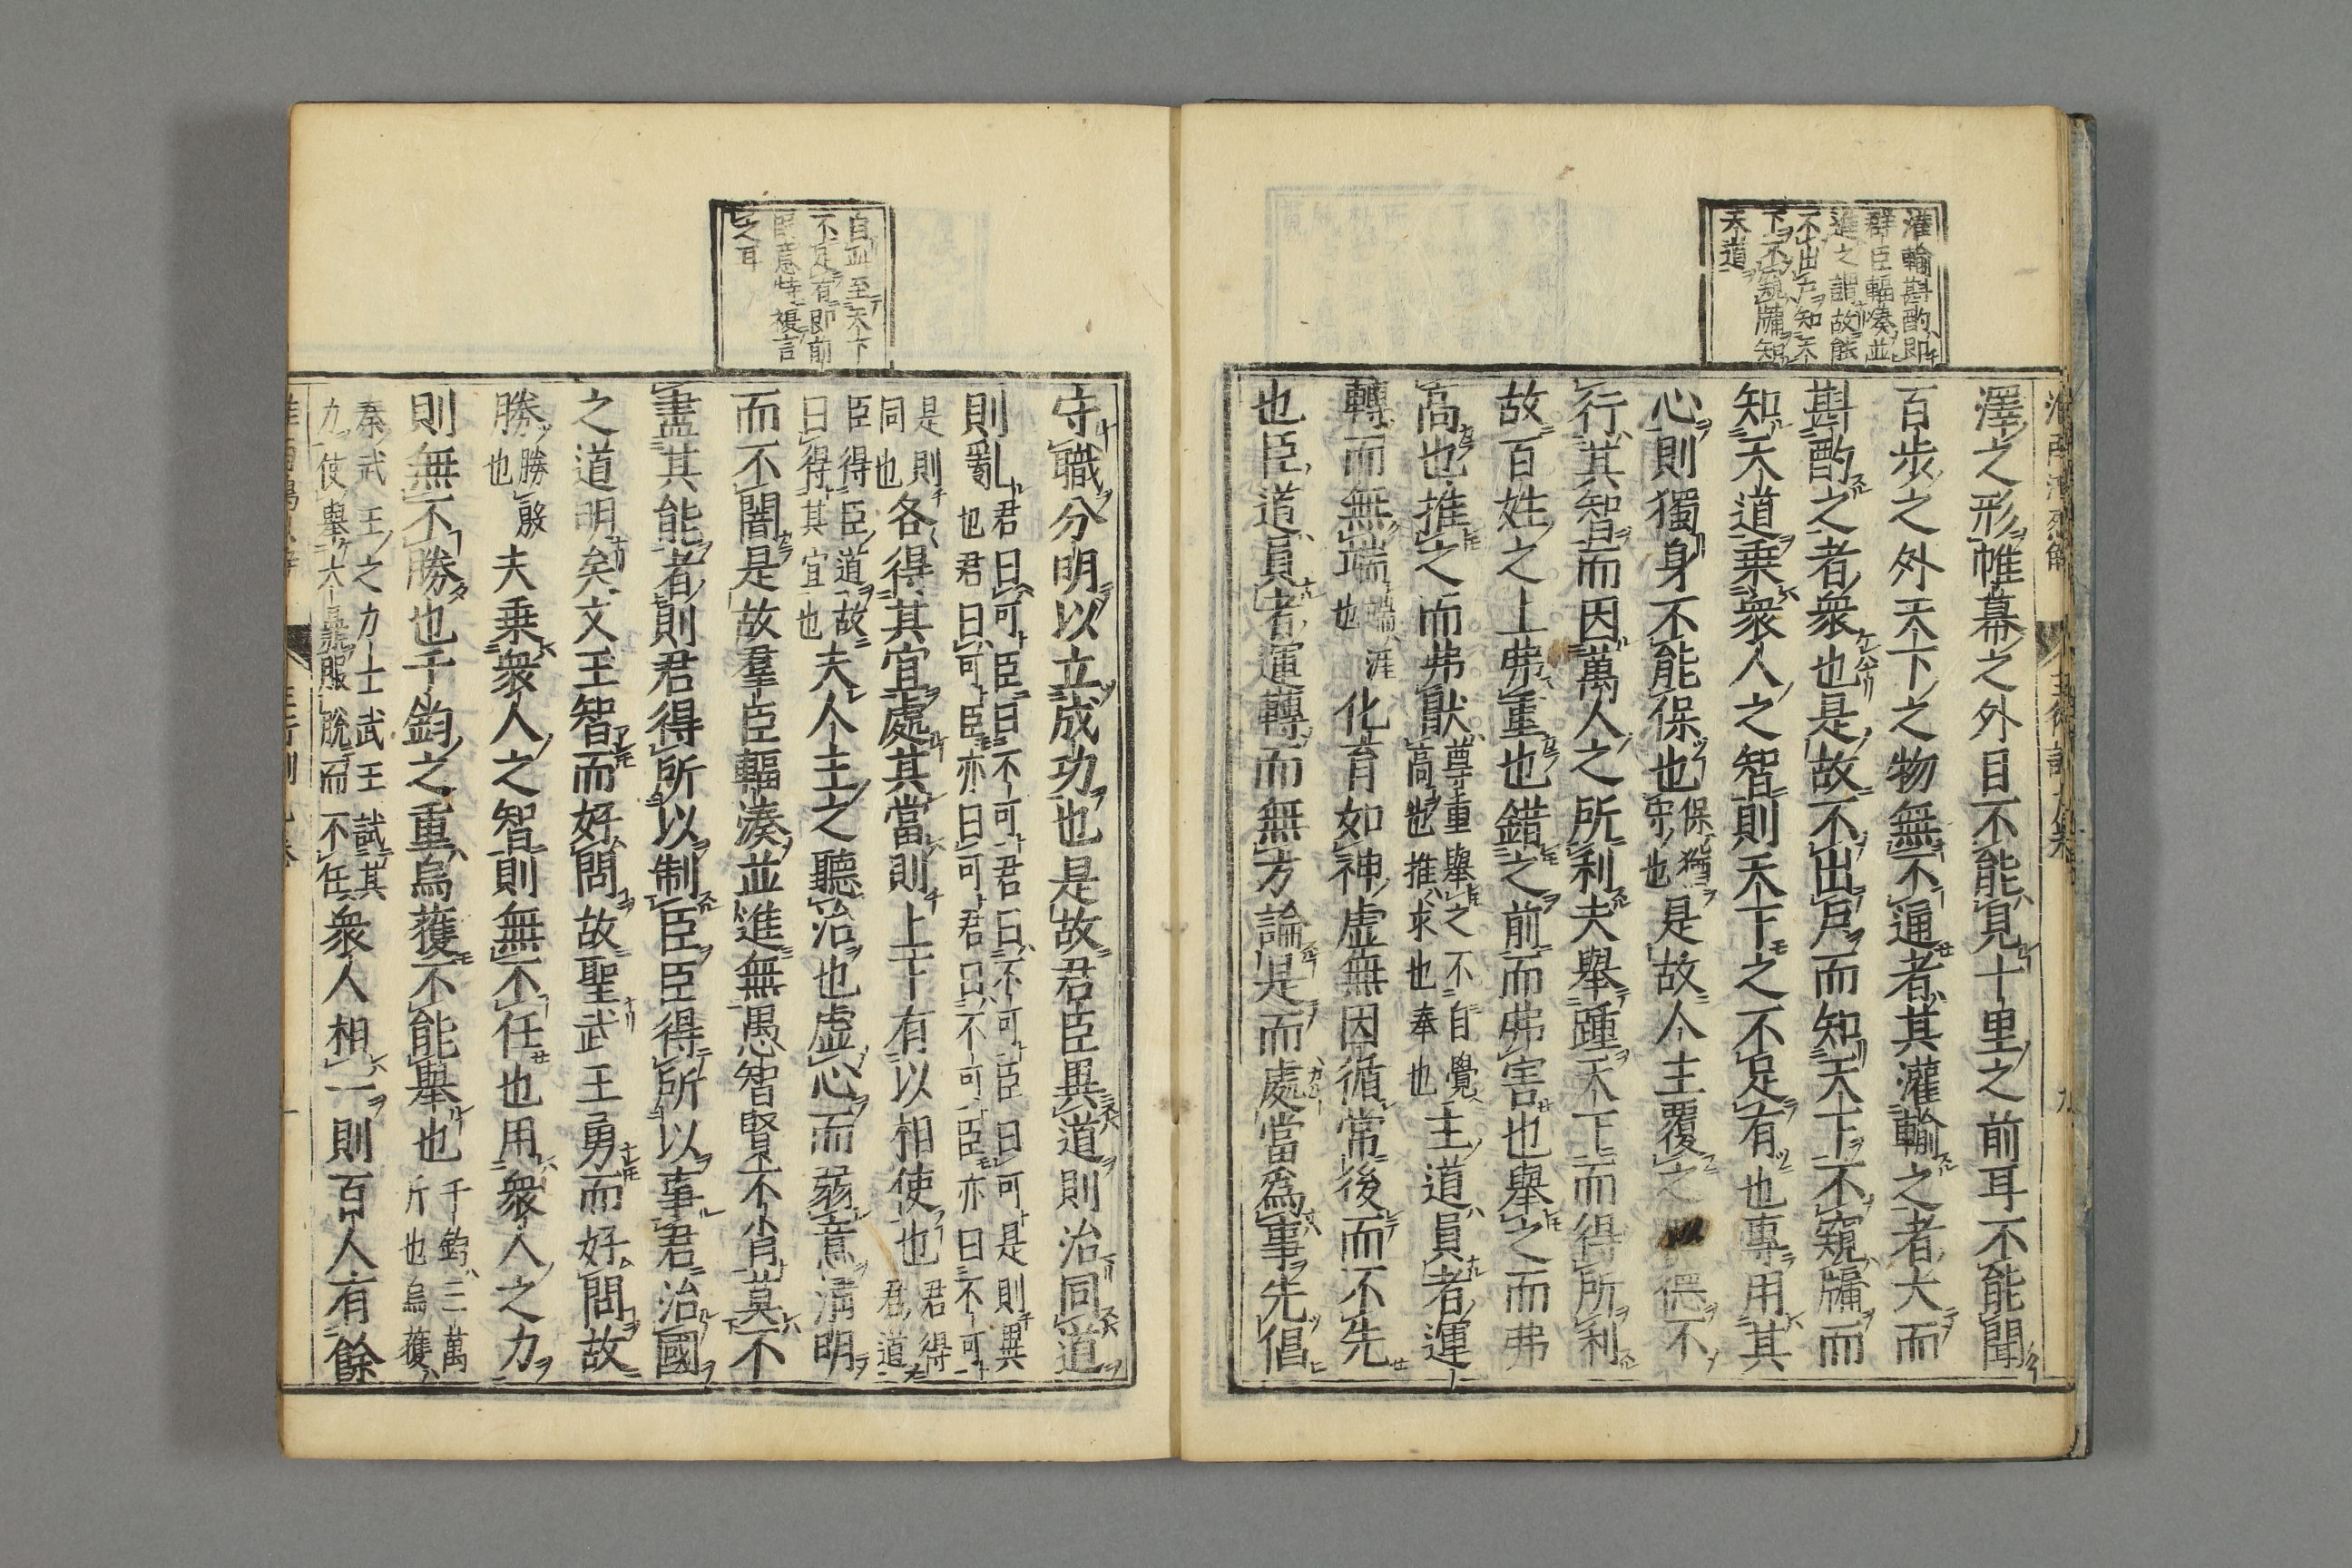 灌輸斟酌即
群臣輻湊並
進之謂故能
不出戸知天
下不窺牖知
天道
澤之形帷幕之外目不能見十里之前耳不能聞
百歩之外天下之物無不通者其灌輸之者大而
斟酌之者衆也是故不出戸而知天下不窺牖而
知天道乗衆人之智則天下之不足有也專用其
心則獨身不能保也保猶守也是故人主覆之德不
行其智而因萬人之所利夫舉踵天下而得所利
故百姓之上弗重也錯之前而弗害也舉之而弗
高也推之而弗猒尊重舉之不自覺高也推求也奉也主道員者運
轉而無端端涯也化育如神虚無因循常後而不先
也臣道員者運轉而無方論是而處當爲事先倡
自並至天下
不足有即前
意特複言
之耳
守職分明以立成功也是故君臣異道則治同道
則亂君曰可臣曰不可君曰不可臣曰可是則異也君曰可臣亦曰可君曰不可臣亦曰不可
是則同也各得其宜處其當則上下有以相使也君得君道
臣得臣道故曰得其宜也夫人主之聽治也虚心而弱意淸明
而不闇是故羣臣輻湊並進無愚智賢不肖莫不
盡其能者則君得所以制臣臣得所以事君治國
之道明矣文王智而好問故聖武王勇而好問故
勝勝殷也夫乗衆人之智則無不任也用衆人之力
則無不勝也千鈞之重烏獲不能舉也千鈞三萬斤也烏獲
秦武王之力士武王試其力使舉大鼎脱而不任衆人相一則百人有餘